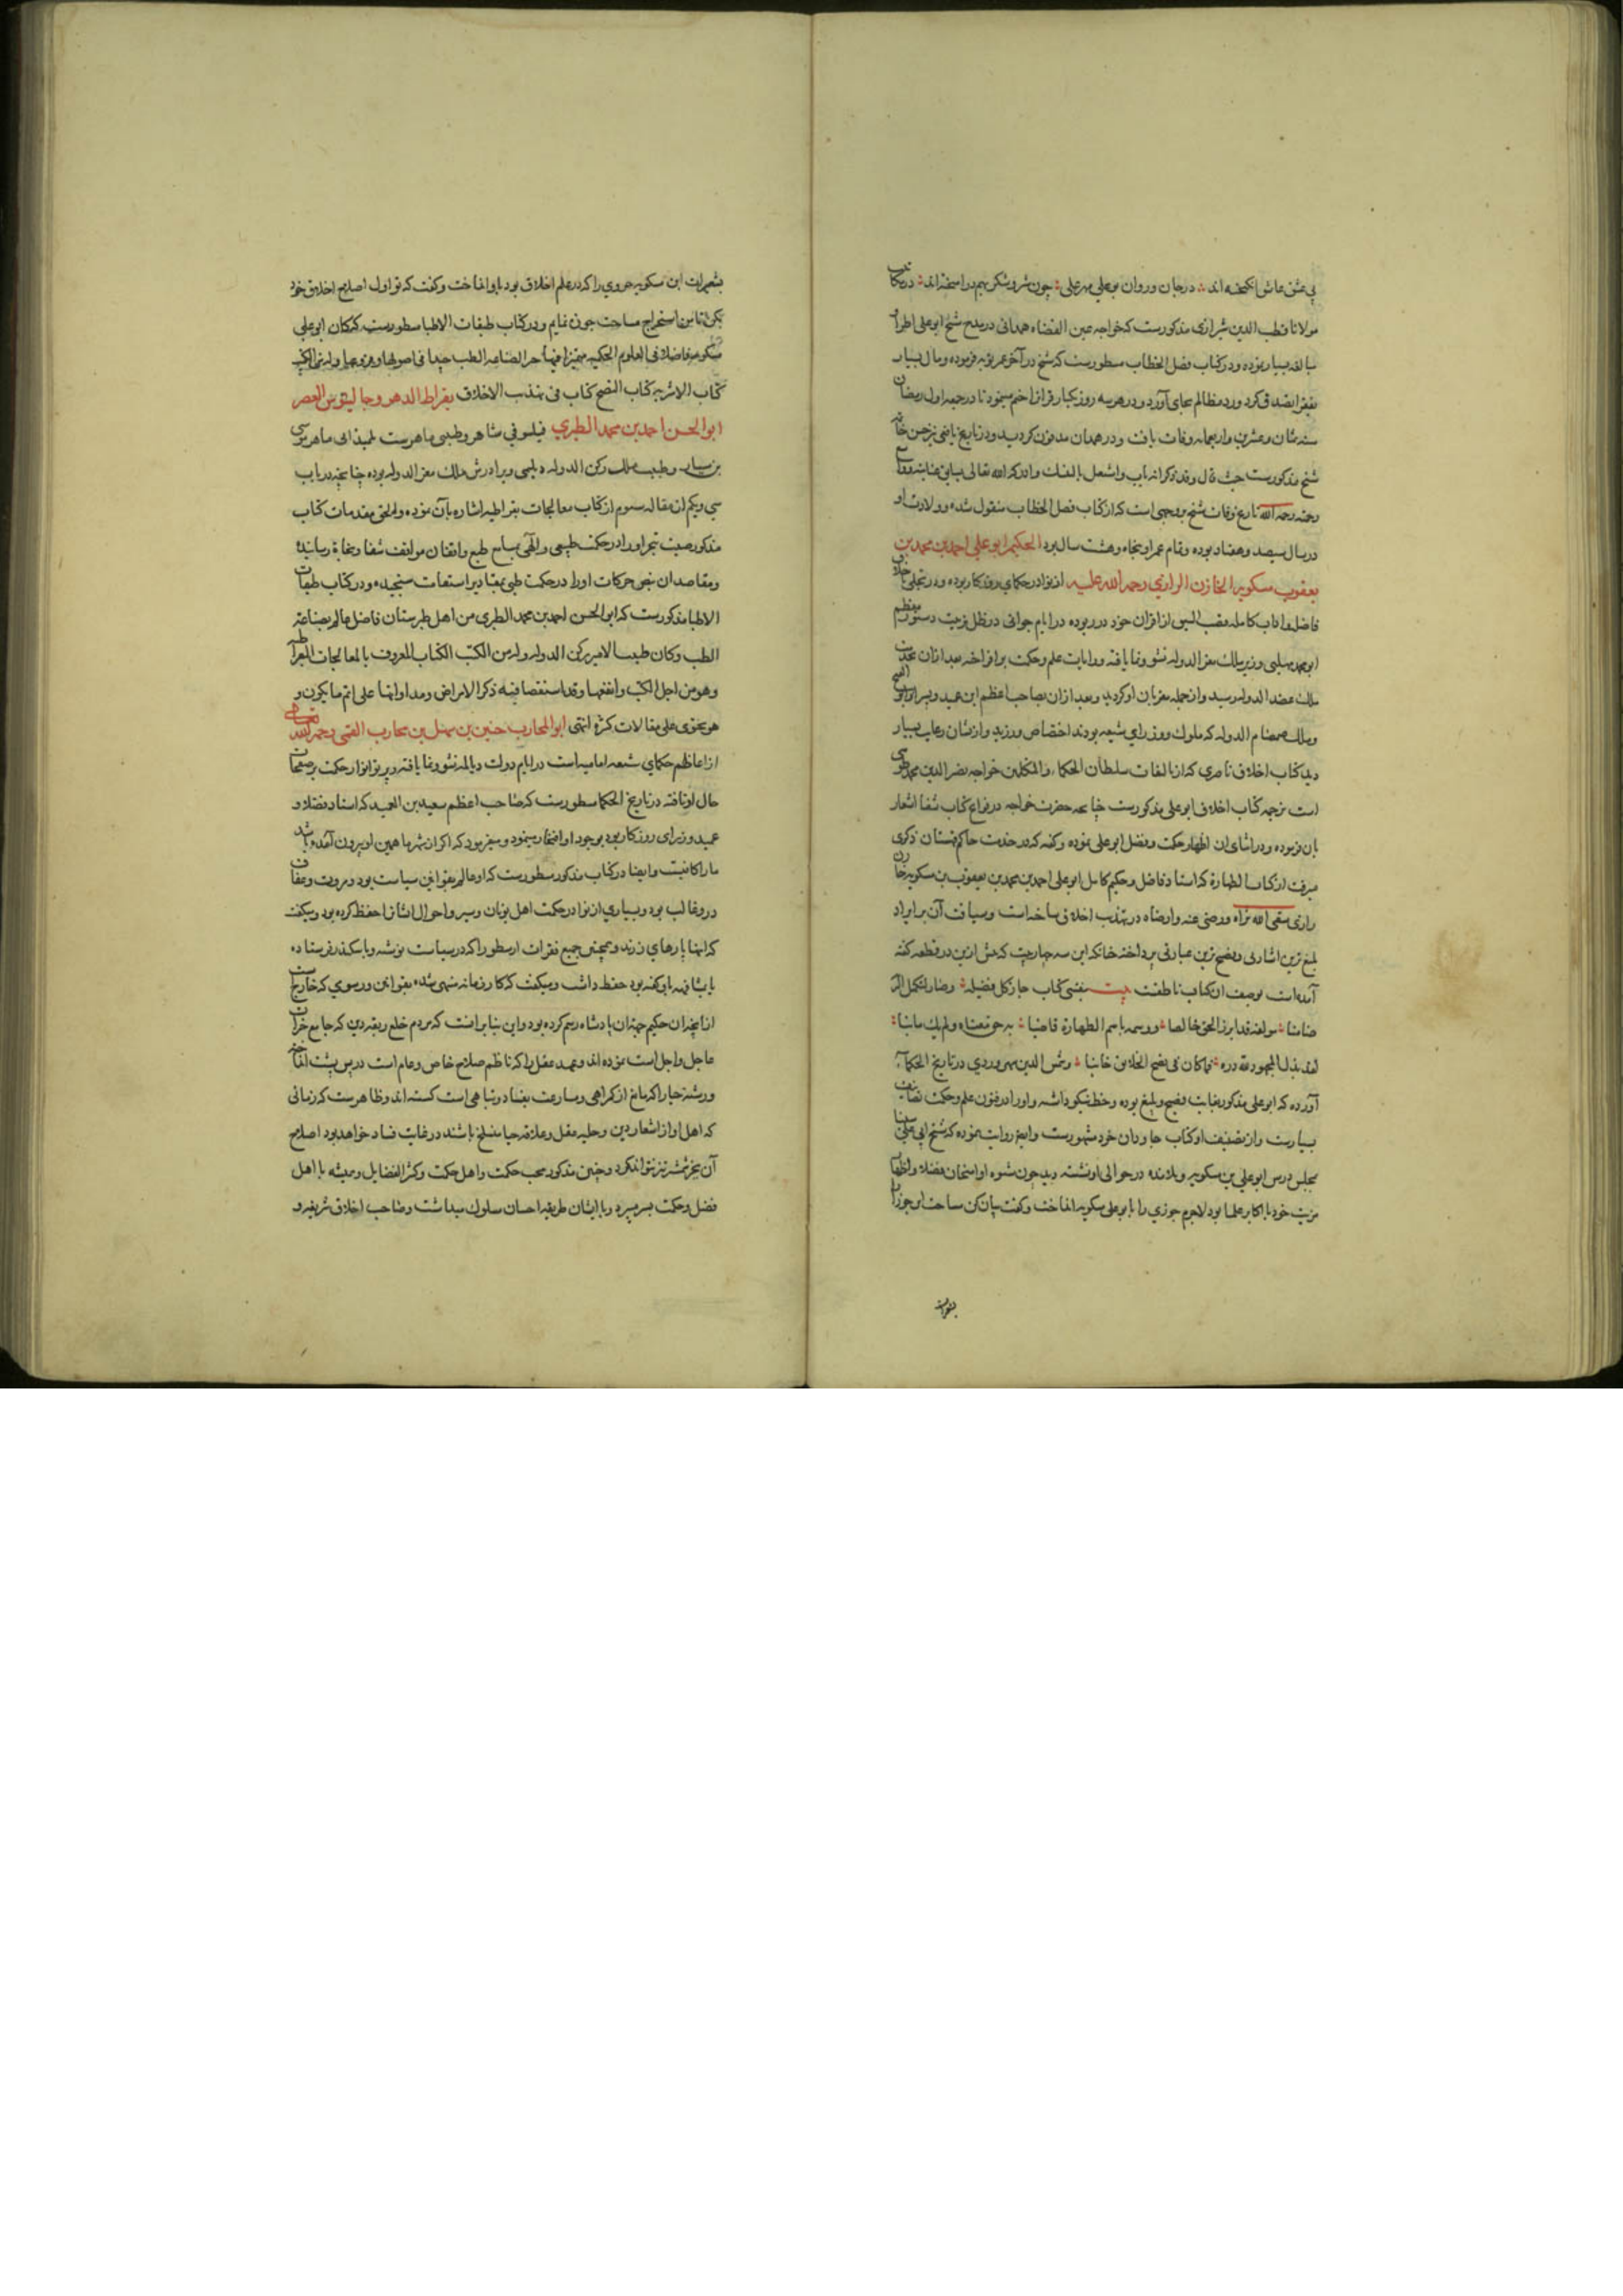 پی عشق عاشق انگیخته‌اند در جان و روان بوعلی مهر علی چون شیر و شکر بهم در آمیخته‌اند در مکاتیب
مولانا قطب الدین شیرازی مذکورست که خواجه عین القضاه همدانی در مدح شیخ ابوعلی اطرا و
مبالغه بسیار نموده و در کتاب فصل الخطاب مسطورست که شیخ در آخر عمر توبه فرموده و مال بسیار
بفقرا تصدق کرد و رد مظالم بجای آورد و در هر سه روز یکبار قرآن ختم مینمود تا در جمعه اول رمضان
سنه ثمان و عشرین و اربعمائه وفات یافت و در همدان مدفون گردید و در تاریخ یافعی نیز حسن خاتمه
شیخ مذکورست حیث قال وقد ذکر انه تاب واشتغل بالنسک وادرکه الله تعالی بسابق عنایته وواسع
رحمته رحمه الله تاریخ وفات شیخ بوجهی است که از کتاب فصل الخطاب منقول شده و ولادت او
در سال سیصد و هفتاد بوده و تمام عمر او پنجاه و هشت سال بود الحکیم ابو علی احمد بن محمد بن
یعقوب مسکویه الخازن الرازی رحمة الله علیه از نوادر حکمای روزگار بوده و در تحلی باخلاق
فاضله و آداب کامله قصب السبق از اقران خود در ربوده در ایام جوانی در ظل تربیت دستور معظم
ابو محمد مهلبی وزیر ملک معز الدوله نشو و نما یافته و رایات علم و حکمت برافراخته بعد از آن بخدمت
ملک عضد الدوله رسید و از جمله مقربان او گردید و بعد از آن بصاحب اعظم ابن عمید و پسر او ابو الفتح
و ملک صمصام الدوله که ملوک و وزرای شیعه بودند اختصاص ورزید و از ایشان رعایت بسیار
دید کتاب اخلاق ناصری که از تالیفات سلطان الحکماء والمتکلمین خواجه نصیر الدین محمد طوسی
است ترجمه کتاب اخلاق ابو علی مذکورست چنانچه حضرت خواجه در فراغ کتاب
بآن فرموده و در اثنای آن اظهار حکمت و فضل ابو علی نموده و گفته که در خدمت حاکم قهستان ذکری
میرفت از کتاب الطهارة که استاد فاضل و حکیم کامل ابو علی احمد بن محمد بن یعقوب بن مسکویه خازن
رازی سقی الله ثراه ورضی عنه وارضاه در تهذیب اخلاق ساخته است و سیاقت آن بر ایراد
بلیغ‌ترین اشارتی و فصیح‌ترین عبارتی پرداخته چنانکه این سه چهار بیت که پیش ازین در قطعه گفته
آمده است بوصف آن کتاب ناطقست بیت بنفسی کتاب حاز کل فضیلة وصار لتکمیل البر
ضامنا مؤلفه قد ابرز الحق خالصا ووسمه باسم الطهارة قاضیا به حق معناه ولم یک ماینا
لقد بذل المجهود لله دره فما کان فی نصح الخلائق خاینا و شمس الدین سهروردی در تاریخ الحکماء
آورده که ابو علی مذکور بغایت فصیح و بلیغ بوده و خط نیکو داشته و او را در فنون علم و حکمت تصانیف
بسیارست و از تصنیف او کتاب جاودان خرد مشهورست و ایضا روایت نموده که شیخ ابی علی سینا
بمجلس درس ابو علی بن مسکویه و تلامذه در حوالی او نشسته دید چون شیوه او امتحان فضلا و اظهار
مزیت خود با اکابر علما بود لاجرم جوزی را بابو علی مسکویه انداخت و گفت بیان کن مساحت این جوز را
بشعیرات
بشعیرات ابن مسکویه جزوی را که در علم اخلاق بود باو انداخت و گفت که تو اول اصلاح اخلاق خود
بکن تا من استخراج مساحت جوز نمایم و در کتاب طبقات الاطبا مسطورست که کان ابو علی
مسکویه فاضلا فی العلوم الحکمیه متمیزا فیها خبیرا لصناعة الطب جیدا فی اصولها وفروعها وله من الکتب
کتاب الاشربه کتاب الطبیخ کتاب فی تهذیب الاخلاق بقراط الدهر و جالینوس العصر
ابو الحسن احمد بن محمد الطبری فیلسوفی مشاهر و طبیبی ماهرست تلمیذ ابی ماهر موسی
بن سیار و طبیب ملک رکن الدوله دیلمی و برادرش ملک معز الدوله بوده چنانچه در باب
سی و یکم از مقاله سیوم از کتاب معالجات بقراطیه اشاره بآن نموده و الحق مقدمات کتاب
مذکور صیت تبحر او را در حکمت طبیعی و الهی بسامع طبع واقفان مواقف شفا و نجاة رسانیده
و مقاصد آن نبض حرکات او را در حکمت طبی بمقادیر استقامت سنجیده و در کتاب طبقات
الاطبا مذکورست که ابو الحسن احمد بن محمد الطبری من اهل طبرستان فاضل عالم بصناعة
الطب وکان طبیب الامیر رکن الدوله وله من الکتب الکتاب المعروف بالمعالجات البقراطیة
وهو من اجل الکتب وانفعها وقد استقصا فیه ذکر الامراض ومداواتها علی اتم ما یکون و
هو یحتوی علی مقالات کثیرة انتهی ابو المحارب حنین بن سهل بن محارب القمی رحمه الله تعالی
از اعاظم حکمای شیعه امامیه است در ایام دولت دیالمه نشو و نما یافته و پرتو انوار حکمت بر صفحات
حال او تافته در تاریخ الحکما مسطورست که صاحب اعظم سعید بن العمید که استاد فضلا و
عمید وزرای روزگار بود بوجود او افتخار مینمود و میفرمود که اگر از شهر ما همین او بیرون آمده باشد
ما را کافیست و ایضا در کتاب مذکور مسطورست که او عالم بقوانین سیاست بود و مروت و عفاف
درو غالب بود و بسیاری از نوادر حکمت اهل یونان و سیر و احوال ایشان را حفظ کرده بود و میگفت
که اینها پارهای زرند و همچنین جمیع فقرات ارسطو را که در سیاست نوشته و باسکندر فرستاده
یا مشافهه باو گفته بود حفظ داشت و میگفت که کار زمانه منتهی شده بقوانین و رسومی که خارجست
از آنچه آن حکیم جهة آن پادشاه رسم کرده بود و این بنا بر آنست که مردم خلع ربقه دین که جامع خیرات
عاجل و آجل است نموده‌اند و عهد عقل را که ناظم صلاح خاص و عام است در پس پشت انداخته
و رشته حیا را که مانع از گمراهی و مسارعت بفساد و تباهی است گسسته‌اند و ظاهرست که زمانی
که اهل او از شعار دین و حلیه عقل و علاقه حیا منسلخ باشند در غایت فساد خواهد بود اصلاح
آن بجز شمشیر تیز نتواند کرد و حنین مذکور محب حکمت و اهل حکمت و کثیر الفضایل و همیشه با اهل
فضل و حکمت بسر میبرد و با ایشان طریقه احسان سلوک میداشت و صاحب اخلاق شریفه و